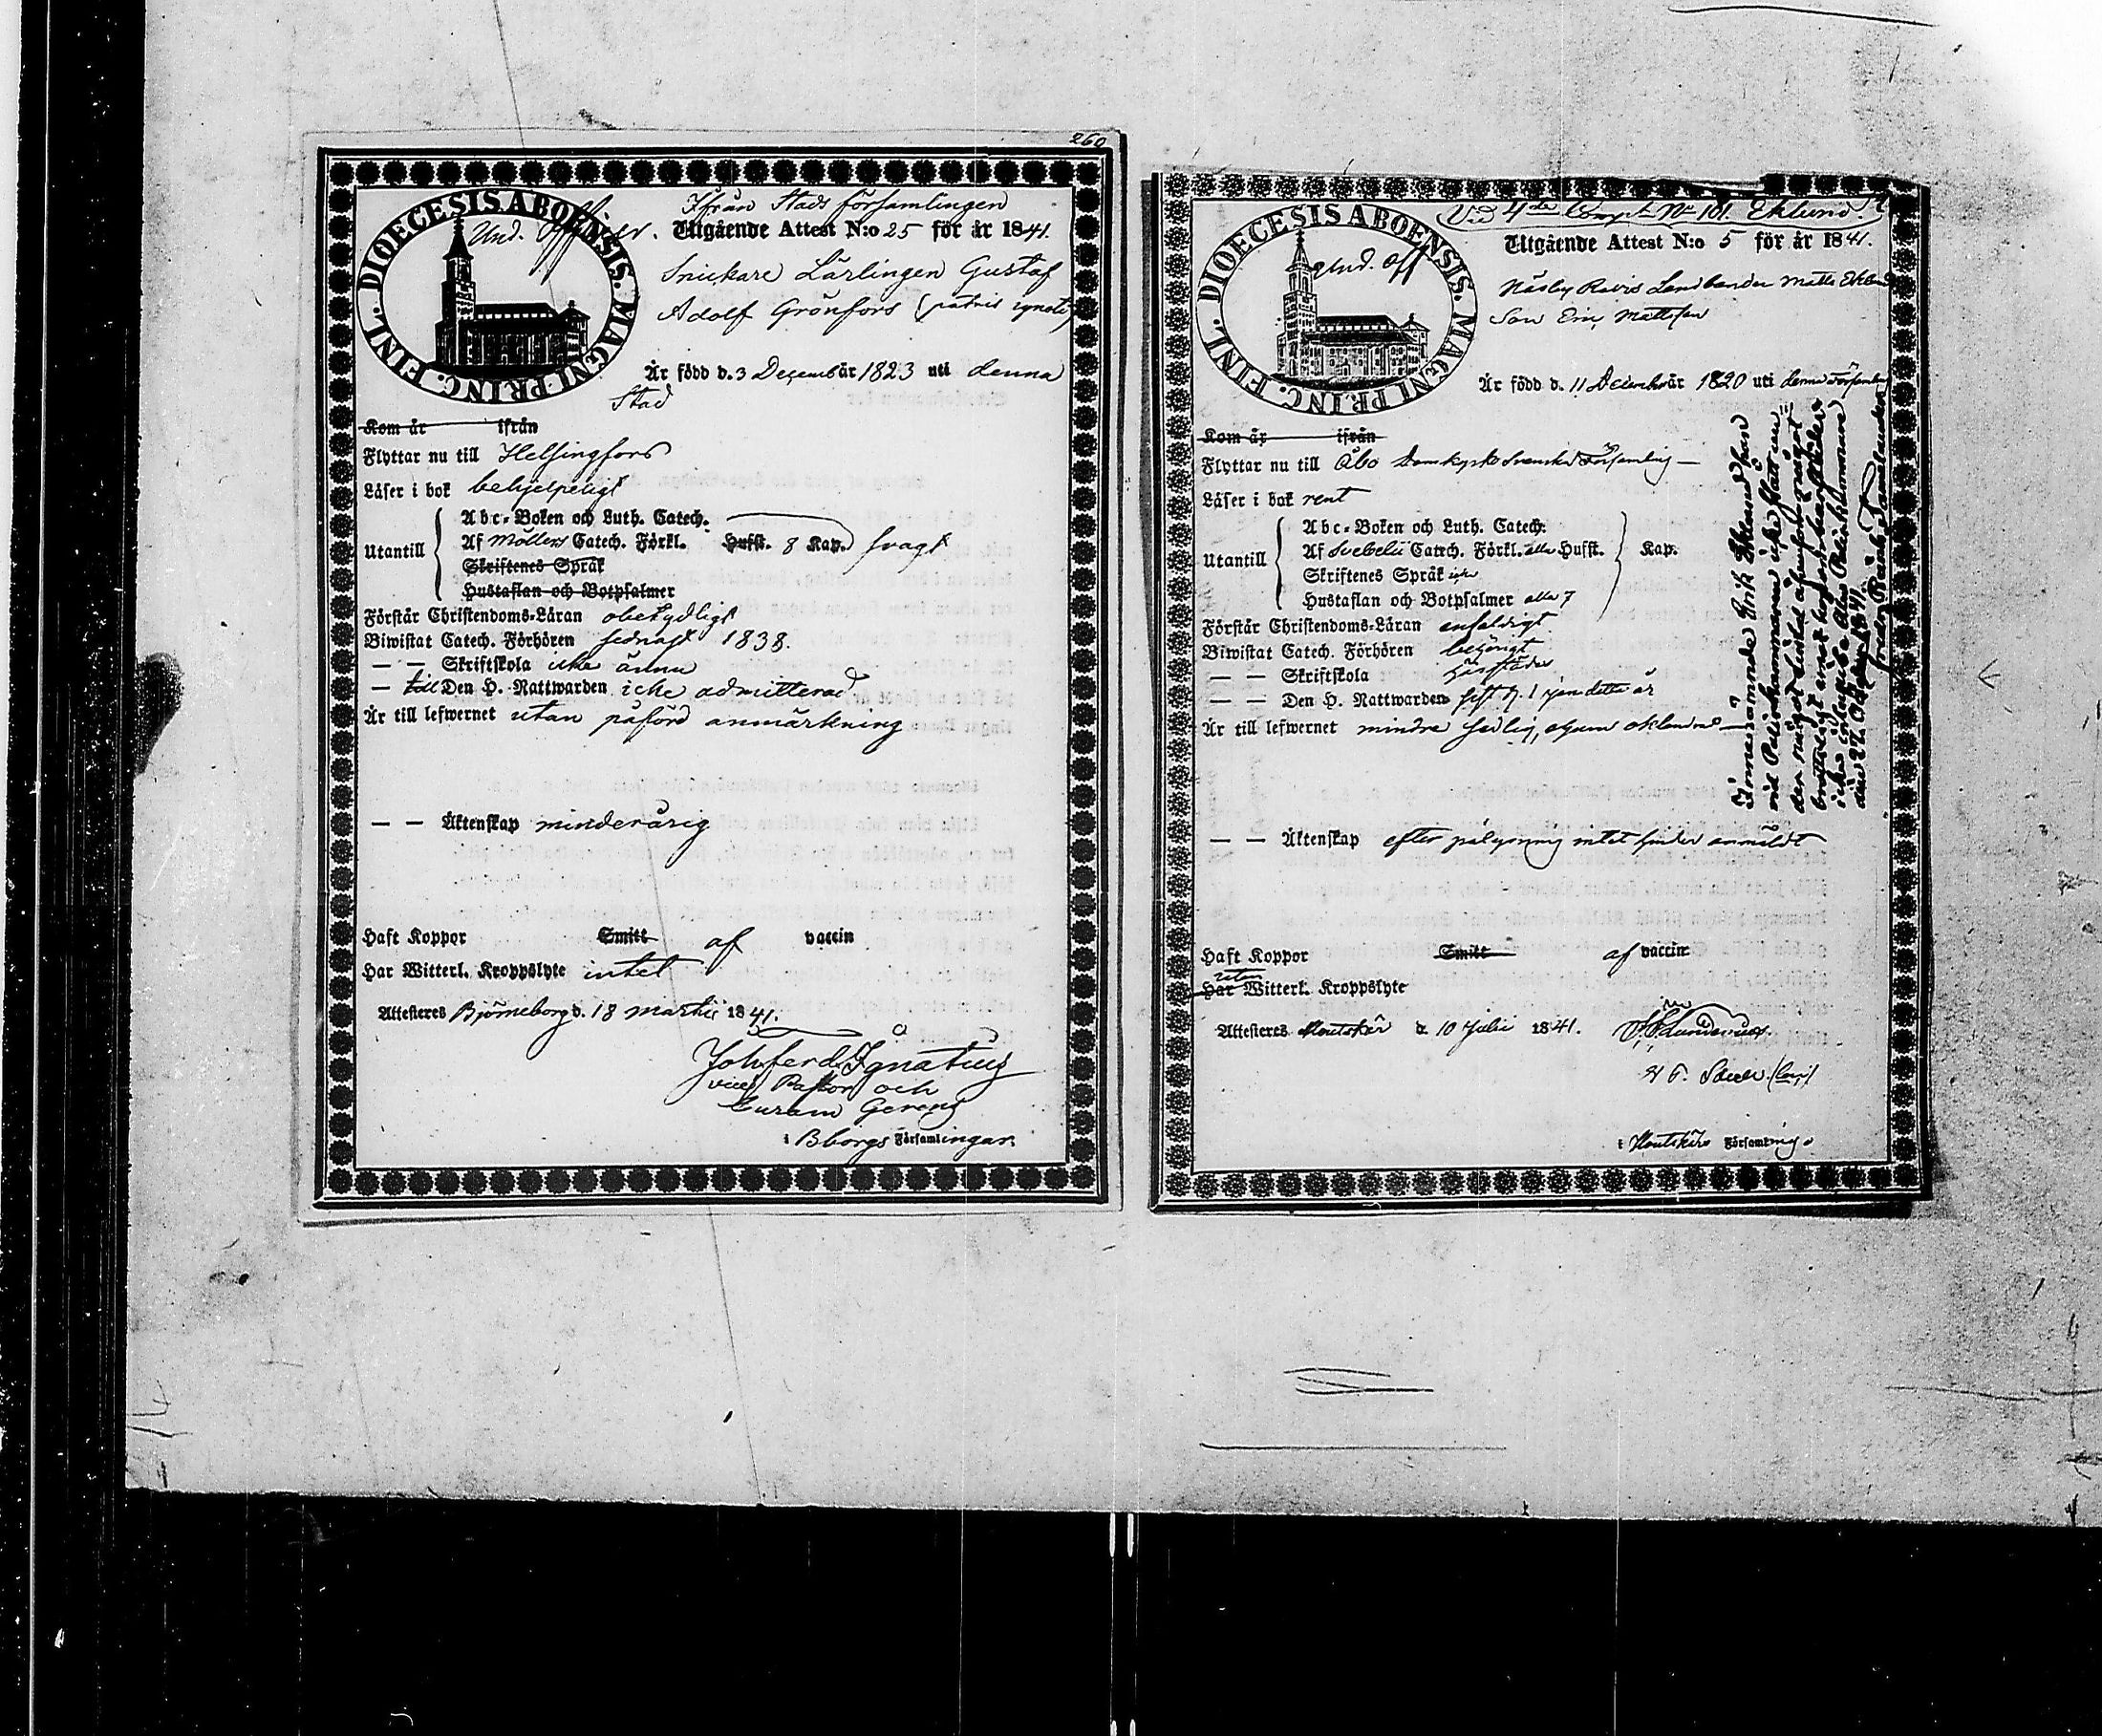 260
DIOECESIS ABOENSIS. MAGNI PRINC. FINL.
Ifrån Stads församlingen
Und. Officer. Utgående Attest N:o 25 för år 1841.
Snickare Lärlingen Gustaf
Adolf Grönfors (patris ignoti)
Är född d. 3 Decemb år 1823 uti denna
Stad
Kom år ifrån
Flyttar nu till Helsingfors
Läser i bok behjelpeligt
Utantill
Abc-Boken och Luth. Catech.
Af Möllers Catech. Förkl. Hufst. 8 Kap. svagt
Skriftenes Språk
Hustaflan och Botpsalmer
Förstår Christendoms-Läran obetydligt
Biwistat Catech. Förhören sednast 1838.
— — Skriftskola icke ännu
— till Den H. Nattwarden icke admitterad
Är till lefwernet utan påförd anmärkning
— — Äktenskap minderårig
Haft Koppor Smitt af vaccin
Har Witterl. Kroppslyte intet
Attesteres Björneborg d. 18 Martii 1841.
Joh. Ferd. Ignatius
vice Pastor och
Curam Gerens
i Bborgs Församlingar.
DIOECESIS ABOENSIS. MAGNI PRINC. FINL.
Vid 4de Comp. No 101. Eklund.
Und. Off
Utgående Attest N:o 5 för år 1841.
Näsby Landbonden Matts Eklund
Son Eric Mattsson
Är född d. 11 December år 1820 uti denna Församling
Kom år ifrån
Flyttar nu till Åbo Domkyrko Svenska Församling —
Läser i bok rent
Utantill
Abc-Boken och Luth. Catech.
Af Svebelii Catech. Förkl. alla Hufst. Kap.
Skriftenes Språk icke
Hustaflan och Botpsalmer alla 7
Förstår Christendoms-Läran enfaldigt
Biwistat Catech. Förhören behörigt
— — Skriftskola härstädes
— — Den H. Nattwarden sist d. 1 Jan detta år
Är till lefwernet mindre sedlig, men oklandrad
— — Äktenskap efter pålysning intet hinder anmäldt
Haft Koppor Smitt af vaccin
utan
Har Witterl. Kroppslyte
Attesteres Houtskär d 10 Julii 1841.
i Houtskärs Församling.
Erik Eklund har
vid Polis kammaren icke
icke Åbo Poliskammare
den 27 October 1841.